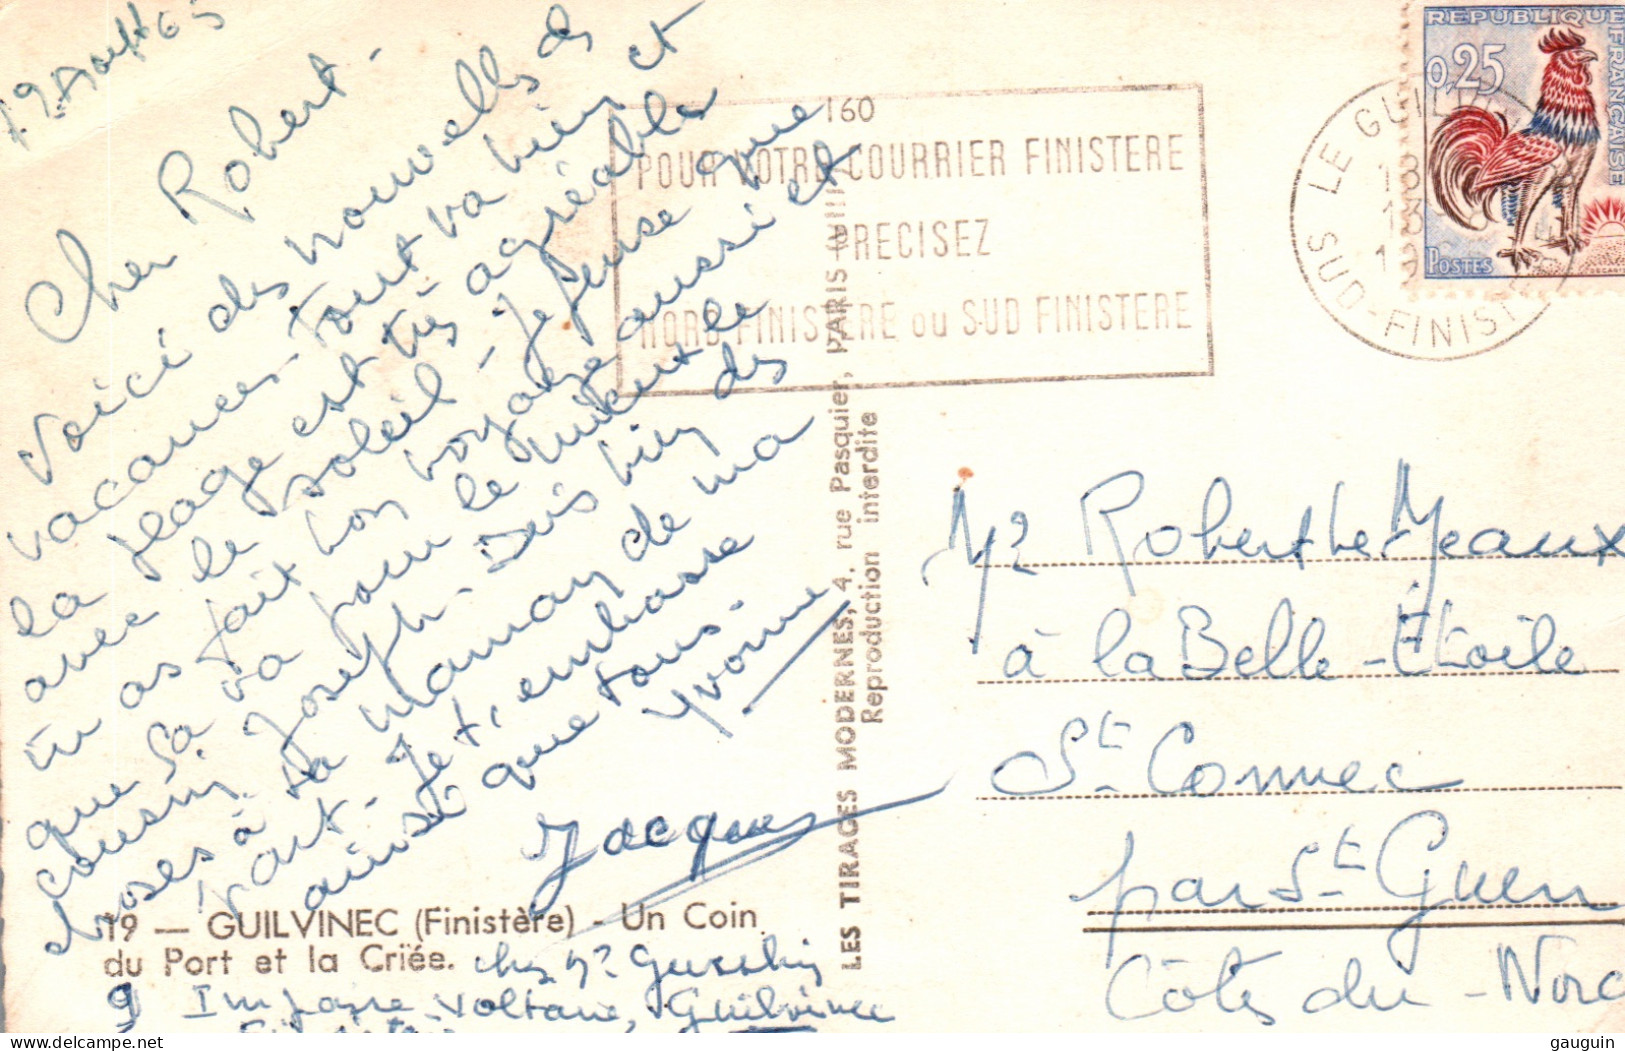 19 Août 65
Cher Robert -
Voici des nouvelles de
vacances - Tout va bien et
la plage est très agréable
avec le soleil - Je pense que
tu as fait bon voyage aussi et
que sa va pour le mieux
cousin Joseph - Dis bien des
choses à ta maman de ma
part - Je t'embrasse
ainsi que tous -
Yvonne
Jacques
19 — GUILVINEC (Finistère) - Un Coin
du Port et la Criée.
chez Mr
9 Impasse Voltaire, Guilvinec
LES TIRAGES MODERNES, 4, rue Pasquier, PARIS (VIII
Reproduction interdite
160
POUR VOTRE COURRIER FINISTERE
PRECISEZ
NORD FINISTERE ou SUD FINISTERE
LE GUILV
18
13
SUD-FINISTERE
REPUBLIQUE
FRANÇAISE
0,25
POSTES
Mr Robert Le Meaux
à la Belle-Étoile
St Connec
par St Guen
Côtes du - Nord
gauguin
© delcampe.net